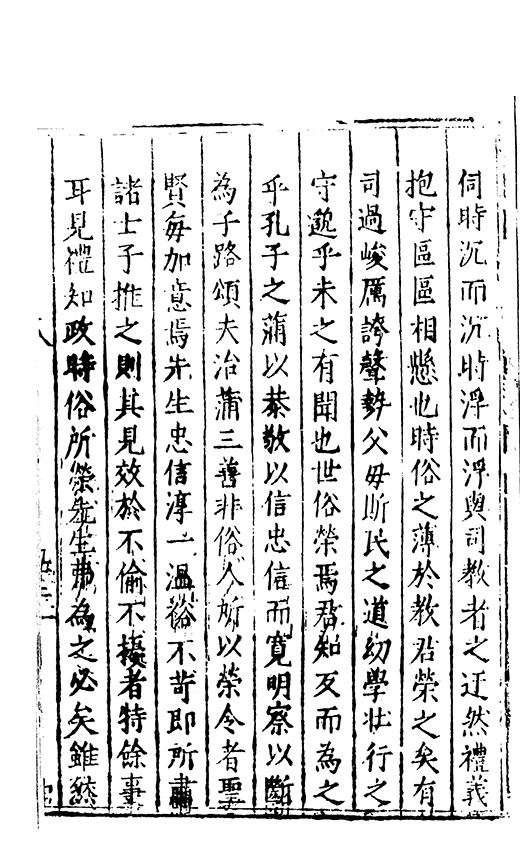 伺時沉而沉時浮而浮與司教者之迂然禮義
抱守區區相懸也時俗之薄於教君榮之矣有
司過峻厲誇聲勢父母斯民之道幼學壯行之
守邈乎未之有聞也世俗榮焉君知反而為之
乎孔子之蒲以恭敬以信忠信而寬明察以斷
為子路頌夫治蒲三善非俗人所以榮令者聖
賢每加意焉先生忠信淳一溫裕不苛即所
諸士子推之則其見效於不偷不擾者特餘事
耳見禮知政時俗所榮先生弗為之必矣雖然